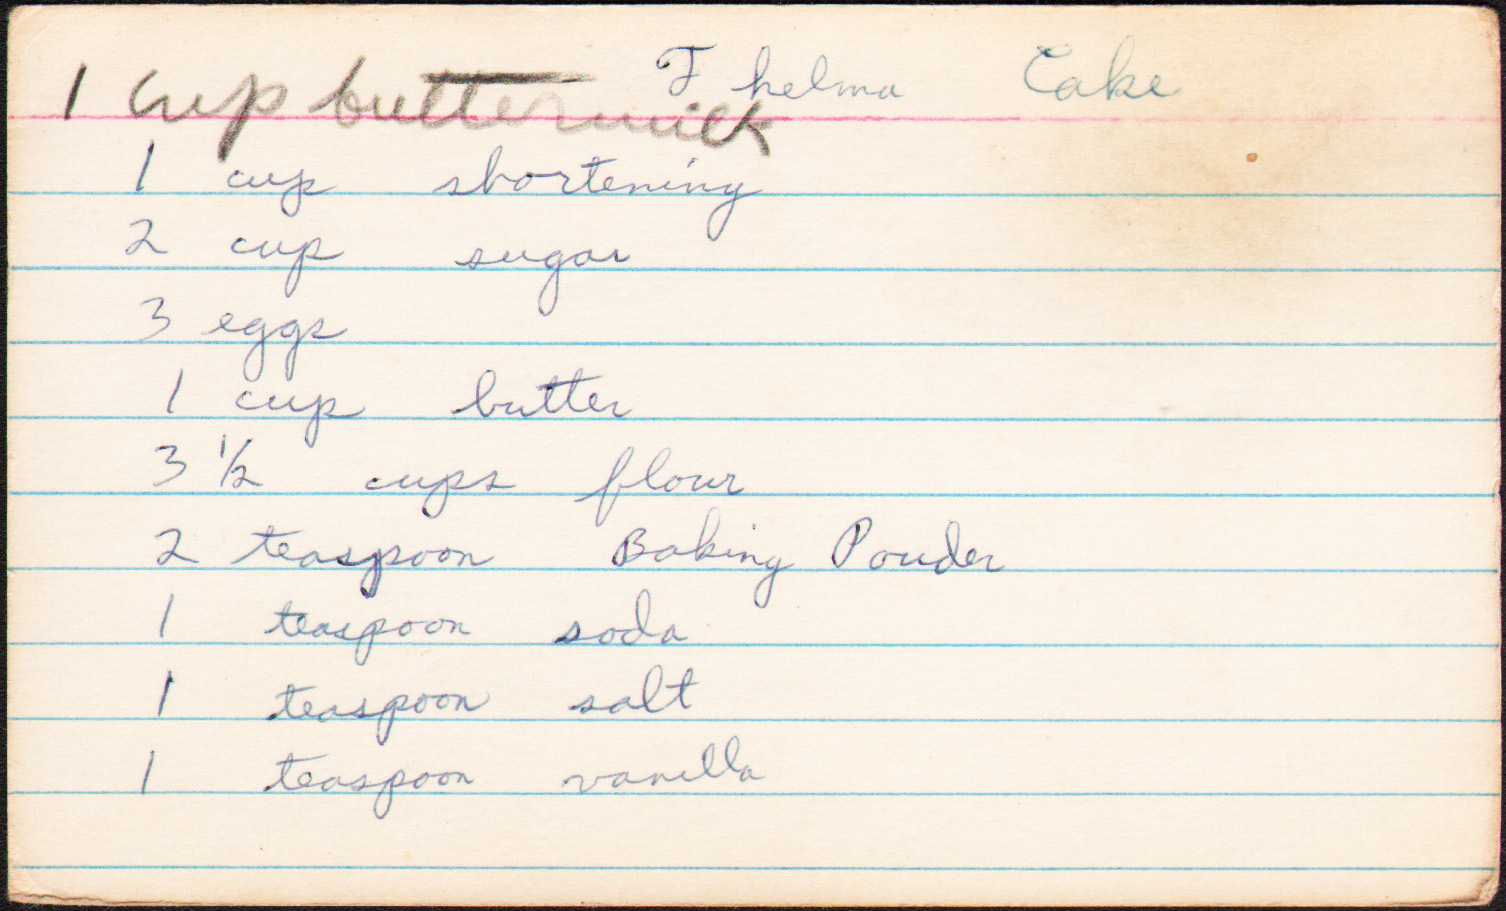 Thelma Cake
1 cup buttermilk
1 cup shortening
2 cup sugar
3 eggs
1 cup butter
3 1/2 cups flour
2 teaspoon Baking Powder
1 teaspoon soda
1 teaspoon salt
1 teaspoon vanilla